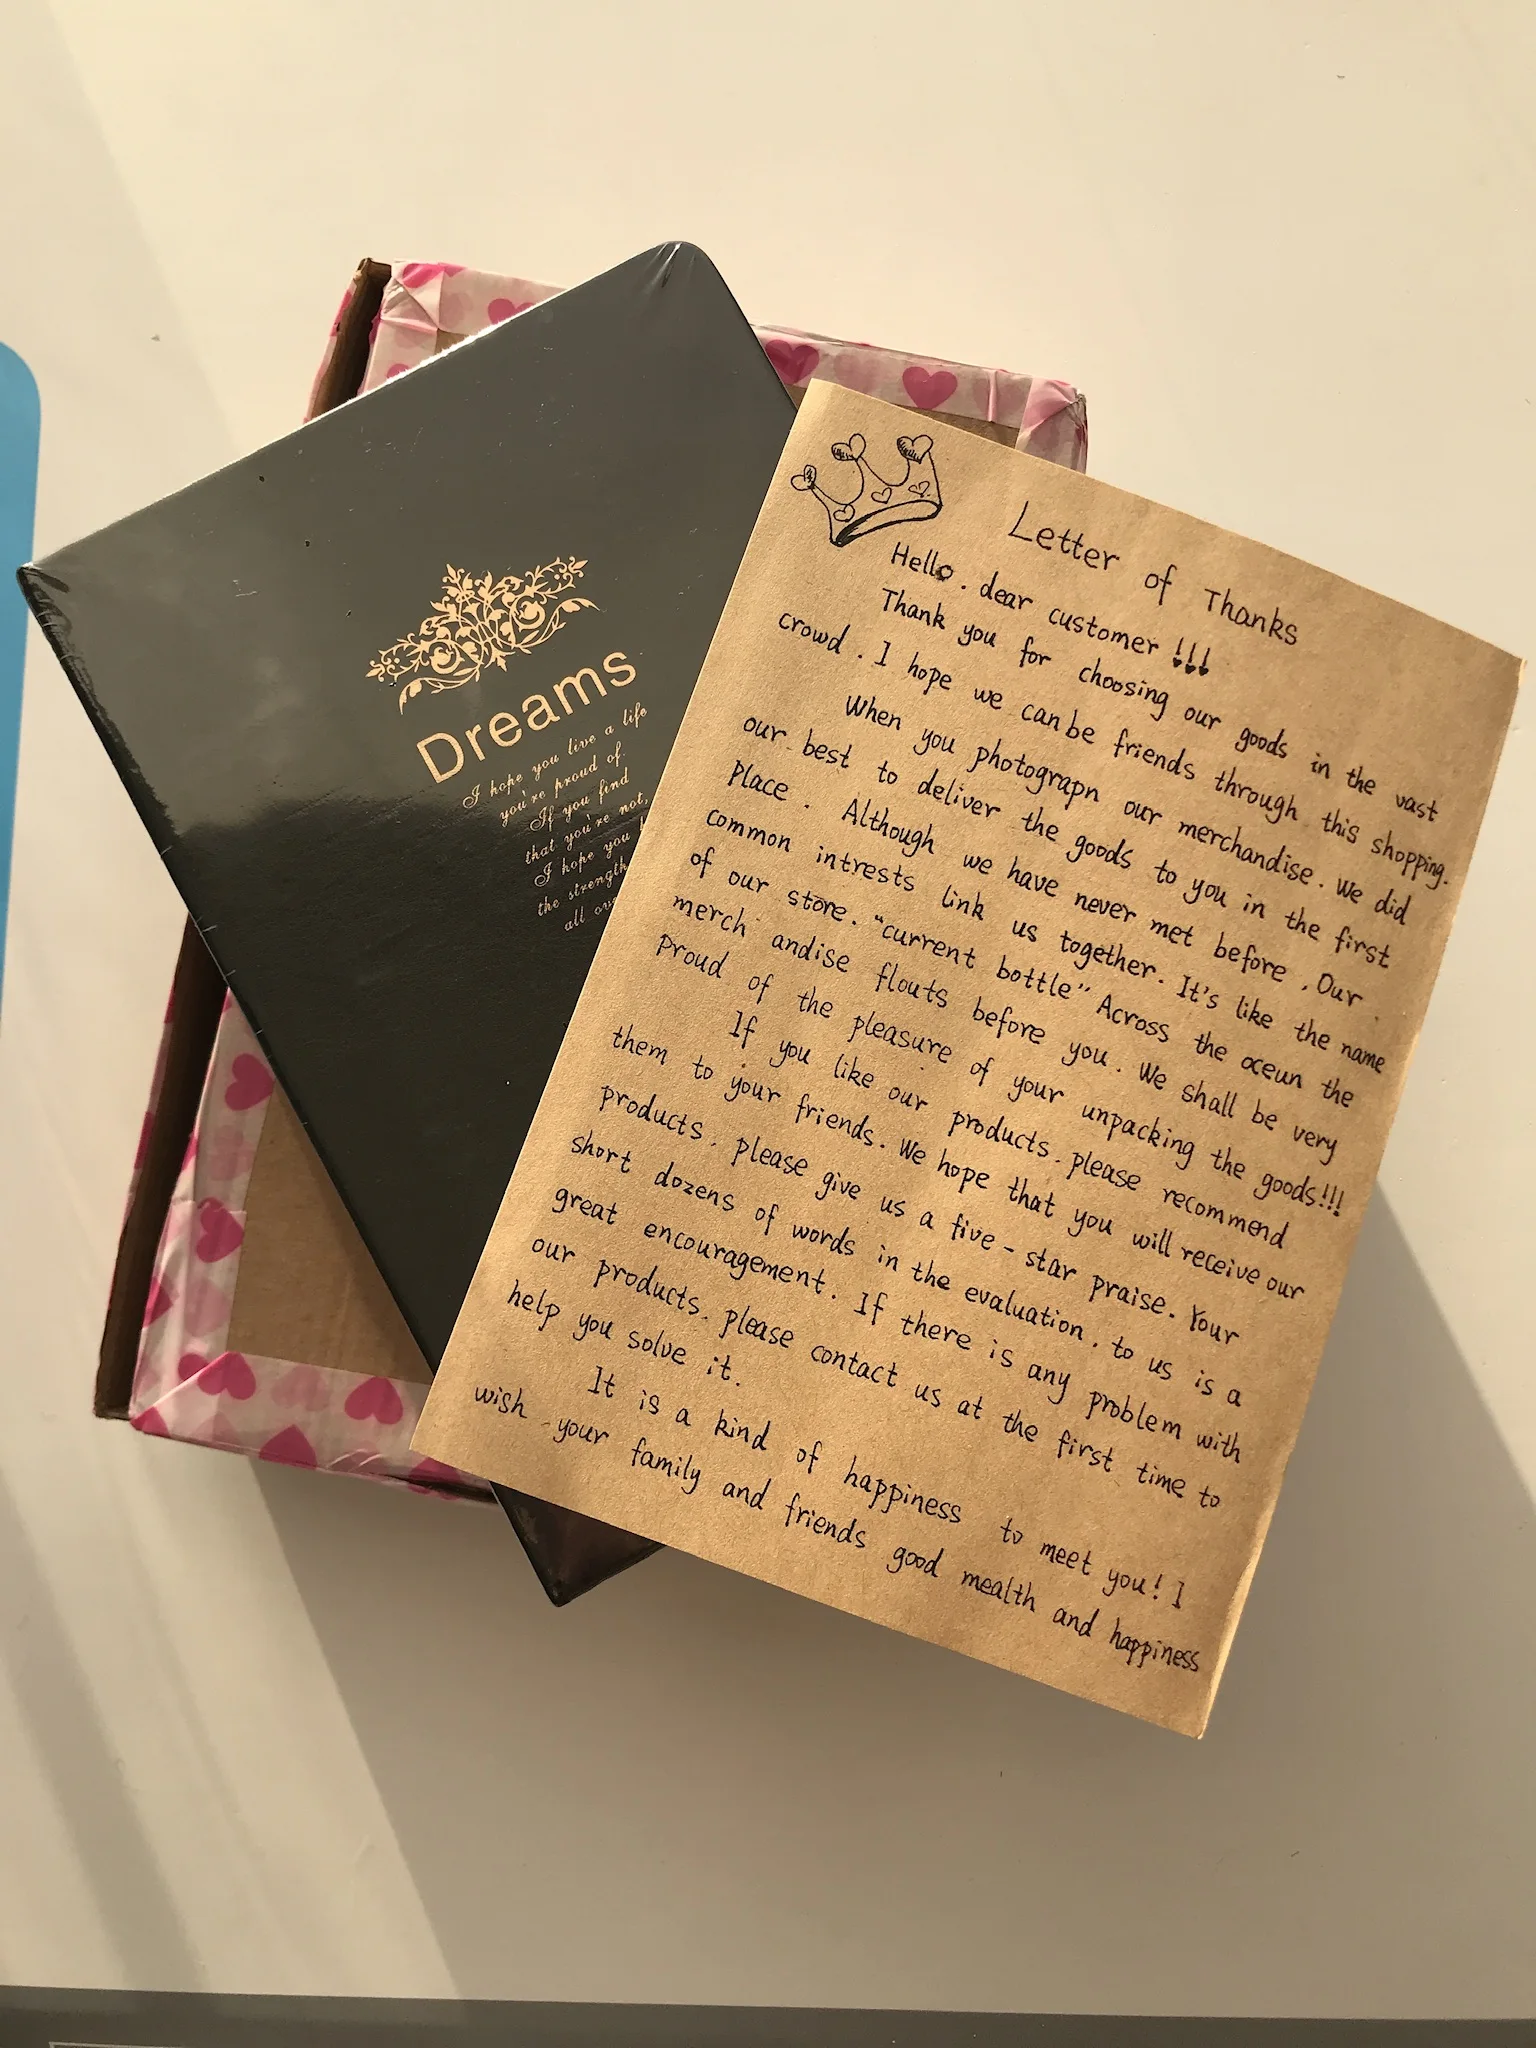 Dreams
I hope you live a life
you're proud of.
If you find
that you're not,
I hope you
the strength
all
Letter of Thanks
Hello. dear customer !!!
Thank you for choosing our goods in the vast
crowd. I hope we can be friends through this shopping.
When you photograpn our merchandise. We did
our best to deliver the goods to you in the first
place. Although we have never met before. Our
common intrests link us together. It's like the name
of our store. "current bottle" Across the oceun the
merch andise flouts before you. We shall be very
proud of the pleasure of your unpacking the goods!!!
If you like our products. please recommend
them to your friends. We hope that you will receive our
products. please give us a five-star praise. Your
short dozens of words in the evaluation. to us is a
great encouragement. If there is any problem with
our products. please contact us at the first time to
help you solve it.
It is a kind of happiness to meet you! I
wish your family and friends good mealth and happiness